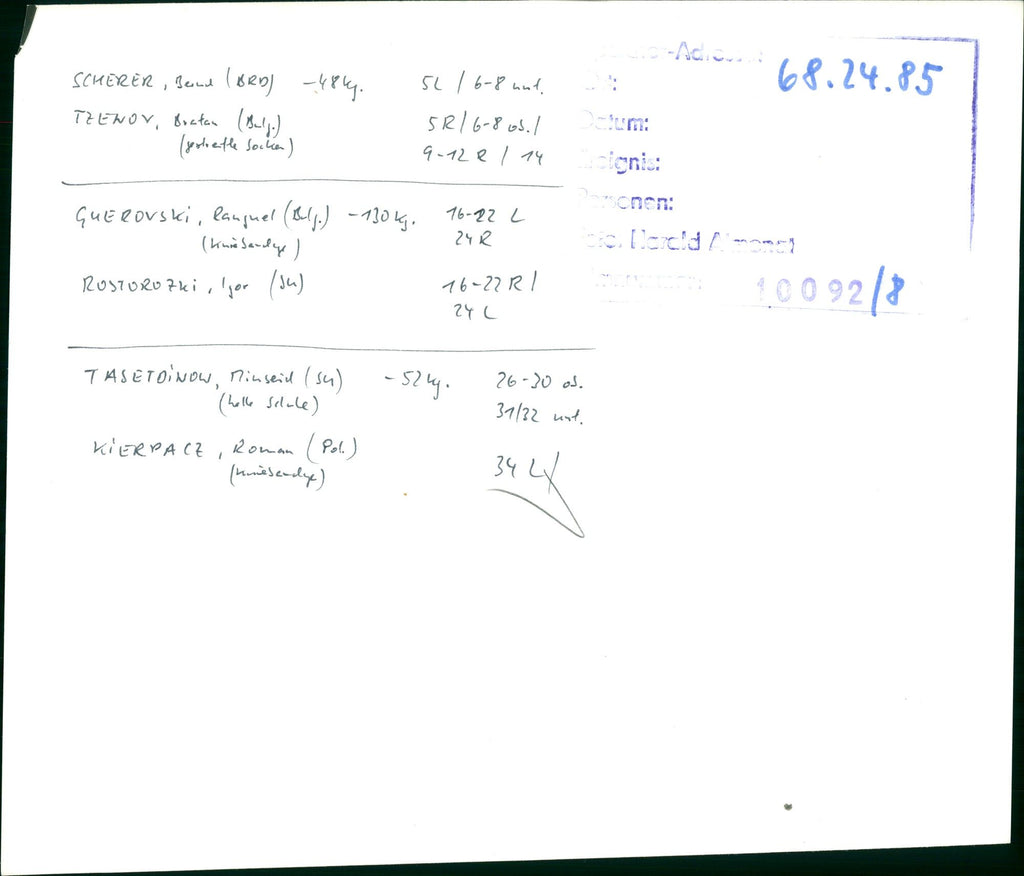 SCHERER, Bernd (BRD) -48kg. 5L / 6-8 unt.
TZENOV, Bratan (Bulg.) 5R / 6-8 ob. /
(gestreifte Socken) 9-12 R / 14
GUEROVSKi, Ranguel (Bulg.) -130kg. 16-22 L
(Kniebandage) 24 R
ROSTOROZKi, Igor (SU) 16-22 R /
24 L
TASETDiNOW, Minseid (SU) -52kg. 26-30 ob.
(helle Schuhe) 31/32 unt.
KiERPACZ, Roman (Pol.) 34 L
(Kniebandage)
-Adresse:
68.24.85
Ort:
Datum:
Ereignis:
Personen:
Foto: Harald Almonat
10092/8